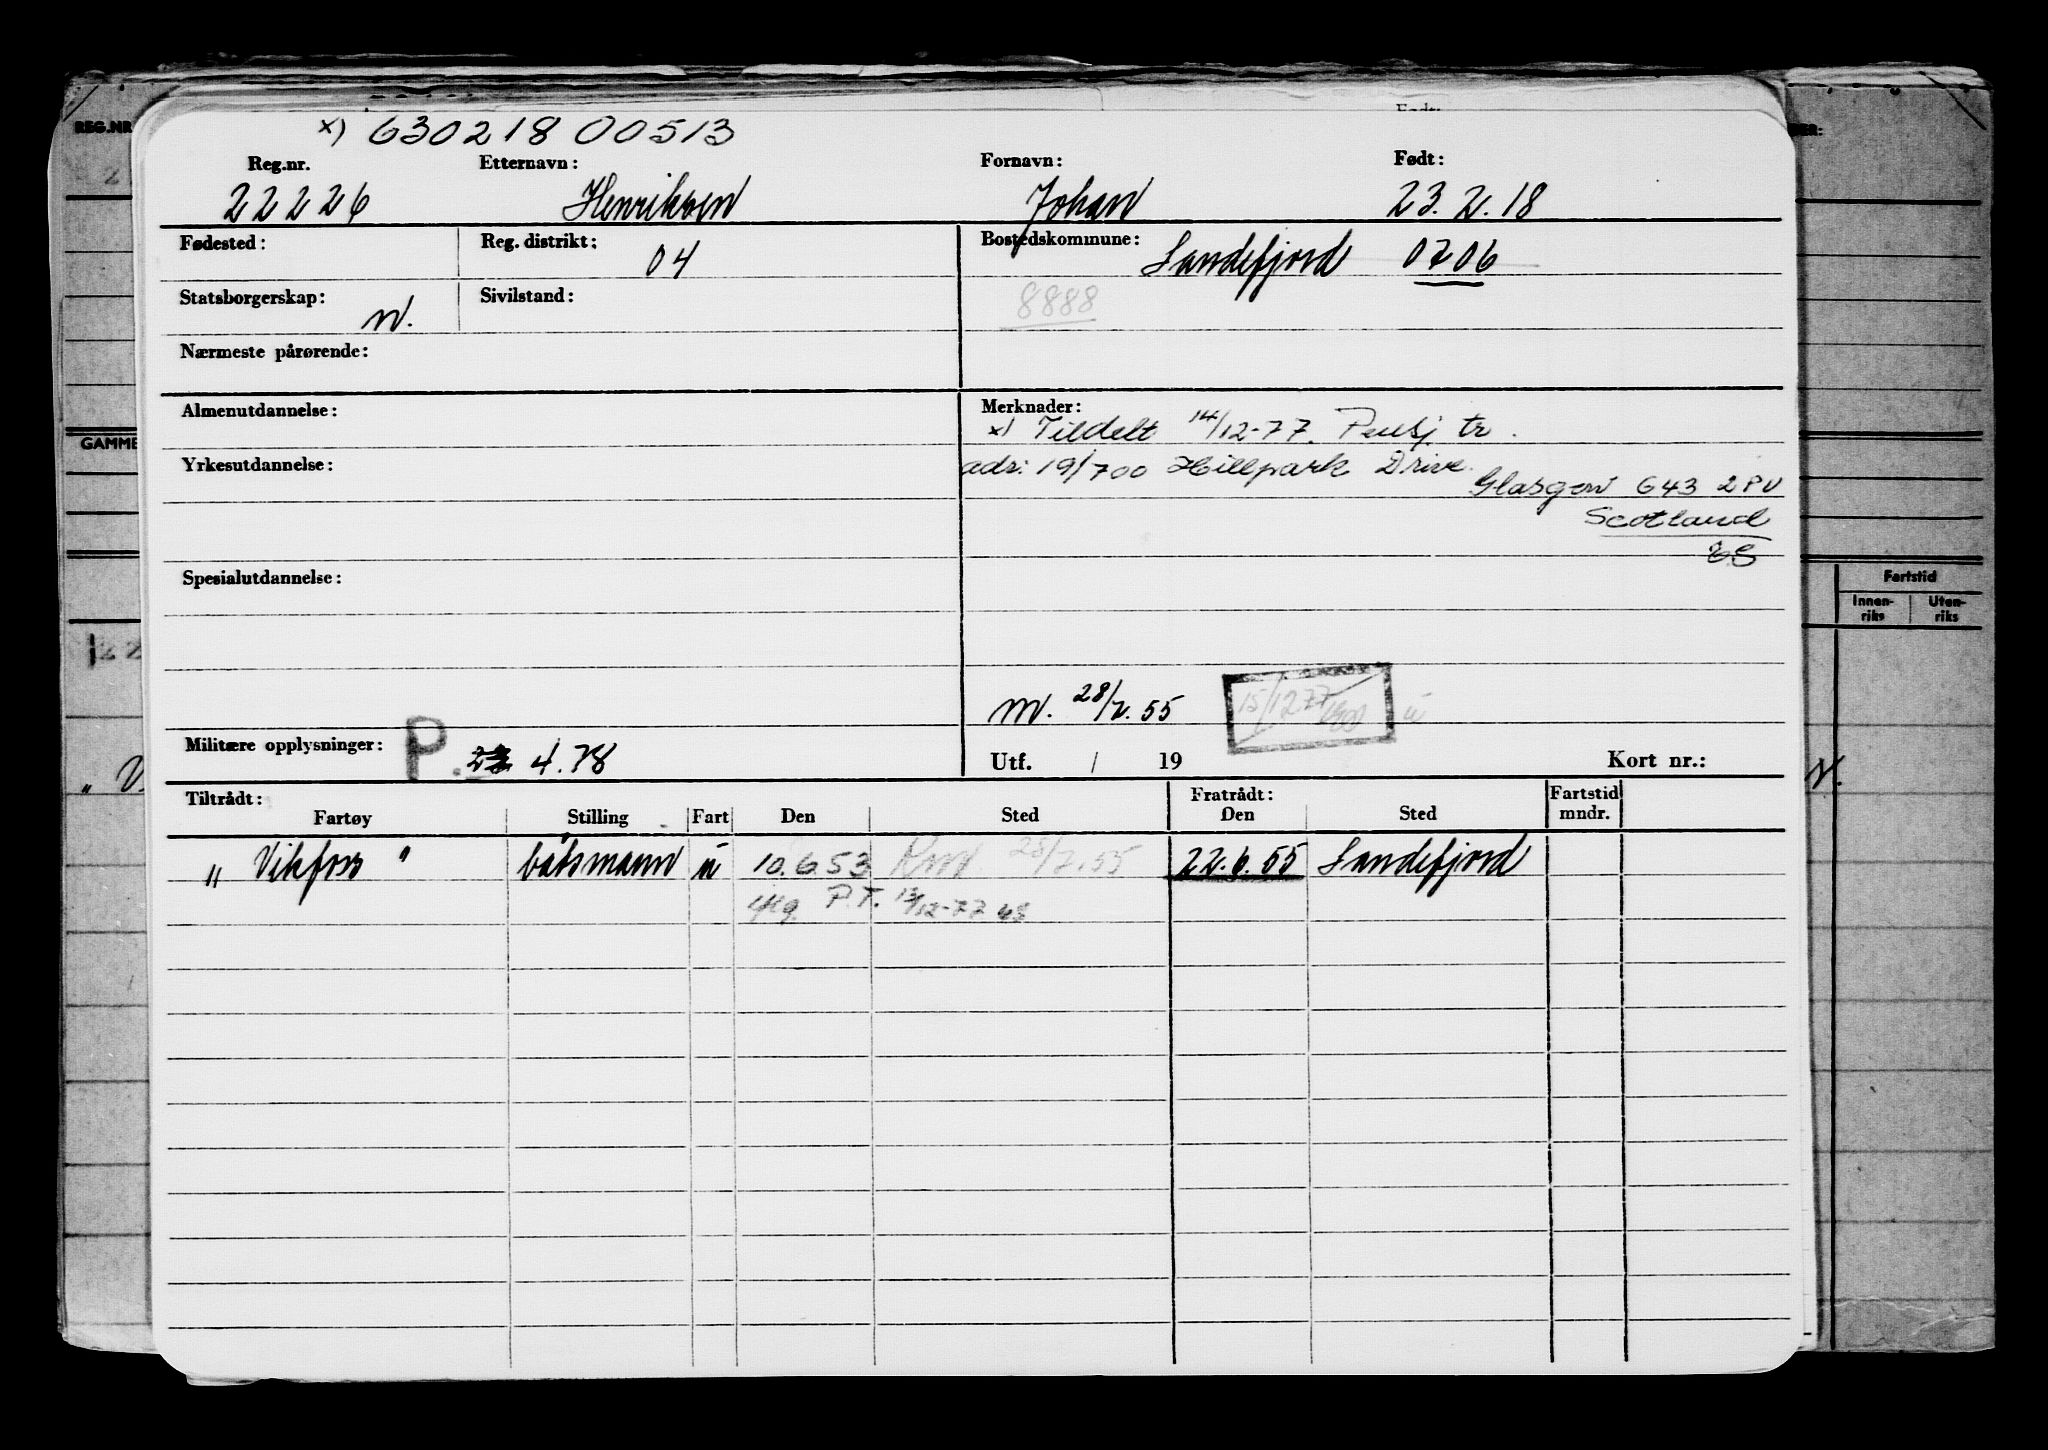 x) 630218 00513
Reg.nr. Etternavn: Fornavn: Født:
22226 Henriksen Johan 23.2.18
Fødested: Reg. distrikt: 04 Bostedskommune: Sandefjord 0706
Statsborgerskap: n. Sivilstand: 8888
Nærmeste pårørende:
Almenutdannelse: Merknader:
x) Tildelt 14/12-77. Pensj. tr.
Yrkesutdannelse: adr: 19/700 Hillpark Drive.
Glasgow G43 2PU
Scotland
Spesialutdannelse:
m. 28/7.55 15/1277
Militære opplysninger: P. 4.78 Utf. / 19 Kort nr.:
Tiltrådt: Fratrådt: Fartstid
Fartøy Stilling Fart Den Sted Den Sted mndr.
„ Vikfoss " båtsmann u 10.6.53 28/7.55 22.6.55 Sandefjord
P.T. 13/12-77
REG.NR
GAMME
Fartstid
Innen- Uten-
riks riks